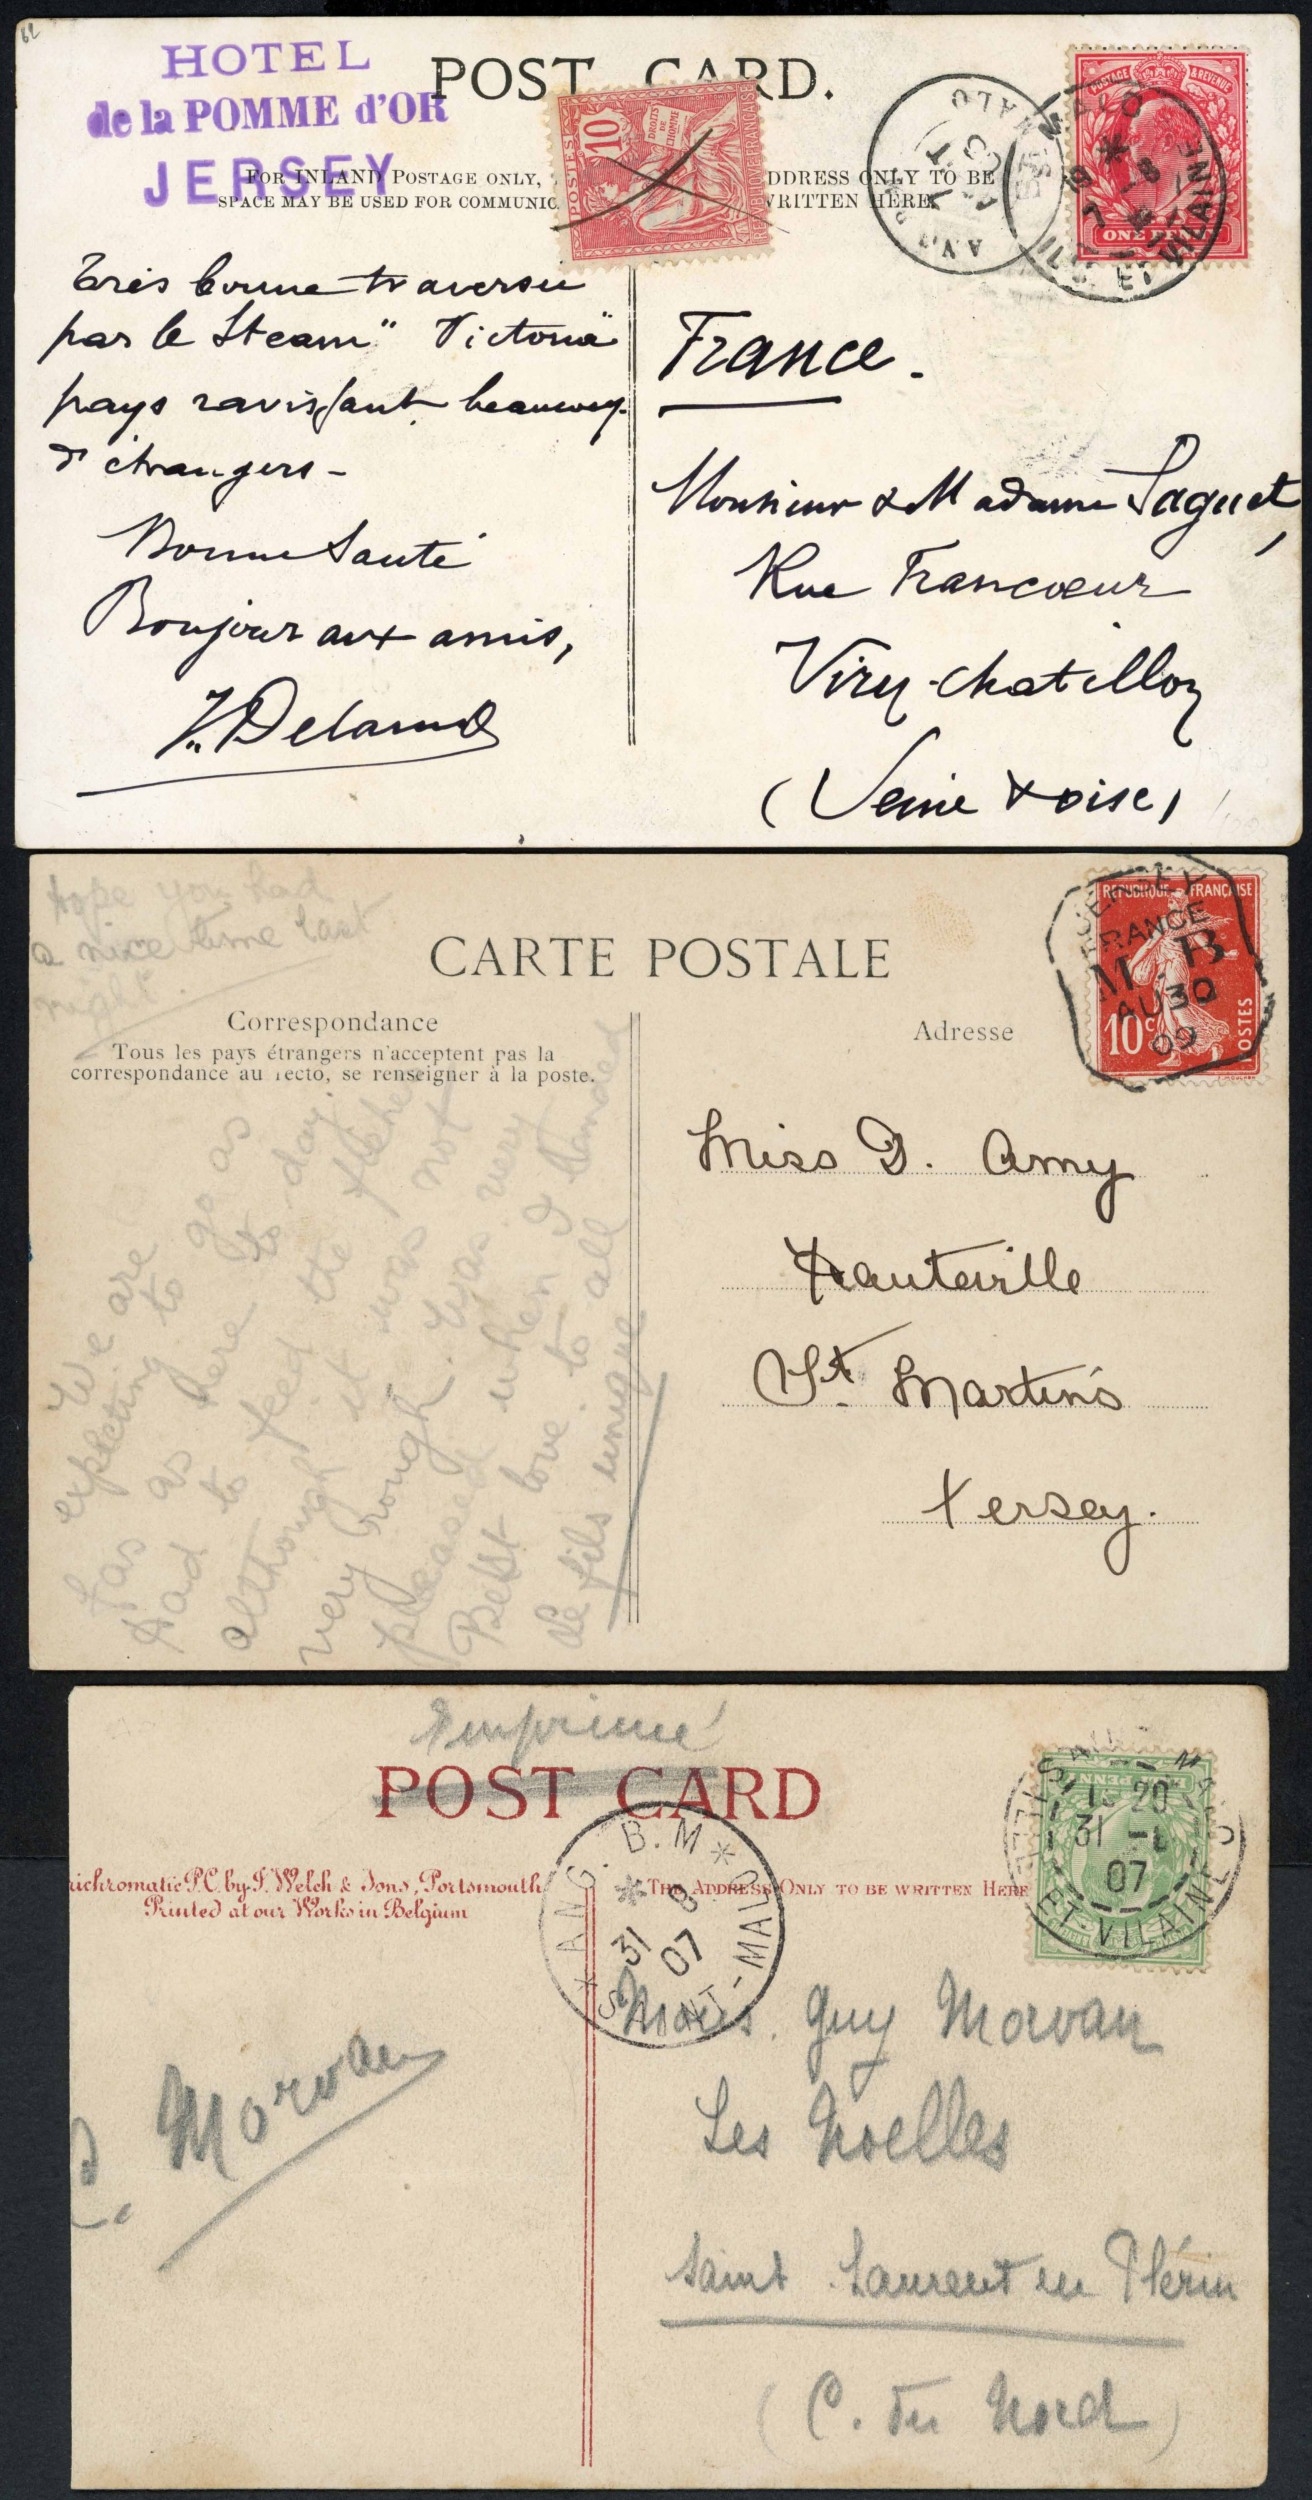 62
HOTEL
de la POMME d'OR
JERSEY
POST CARD.
FOR INLAND POSTAGE ONLY,
SPACE MAY BE USED FOR COMMUNIC
DDRESS ONLY TO BE
WRITTEN HERE.
POSTES
10
DROITS
DE
L'HOMME
REPUBLIQUE FRANÇAISE
POSTAGE & REVENUE
ONE PENNY
ILLE ET VILAINE
Très bonne traversée
par le Steam "Victoria"
pays ravissant beaucoup
d'étrangers-
Bonne Santé
Bonjour aux amis,
France.
Monsieur & Madame Paguet,
Rue Francœur
Viry-chatillon
(Seine & oise)
Hope you had
a nice time last
night.
CARTE POSTALE
Correspondance
Tous les pays étrangers n'acceptent pas la
correspondance au recto, se renseigner à la poste.
Adresse
REPUBLIQUE FRANÇAISE
10c
POSTES
JERSEY
FRANCE
M.B
AU 30
09
We are
expecting to go as
far as here to-day.
Had to feed the fishes
although it was not
very rough. Was very
pleased when I landed
Best love to all
Le fils unique
Miss D. Amy
Hauteville
St. Martin's
Jersey.
Imprimé
POST CARD
richromatic P.C. by J. Welch & Sons, Portsmouth
Printed at our Works in Belgium
THE ADDRESS ONLY TO BE WRITTEN HERE
ANG. B.M
SAINT-MALO
31 8
07
31 -8
07
ET VILAINE
Morvan
Guy Morvan
Les Noelles
Saint Laurent en Plérin
(C. du Nord)